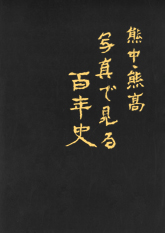 熊中・熊高
写真で見る
百年史